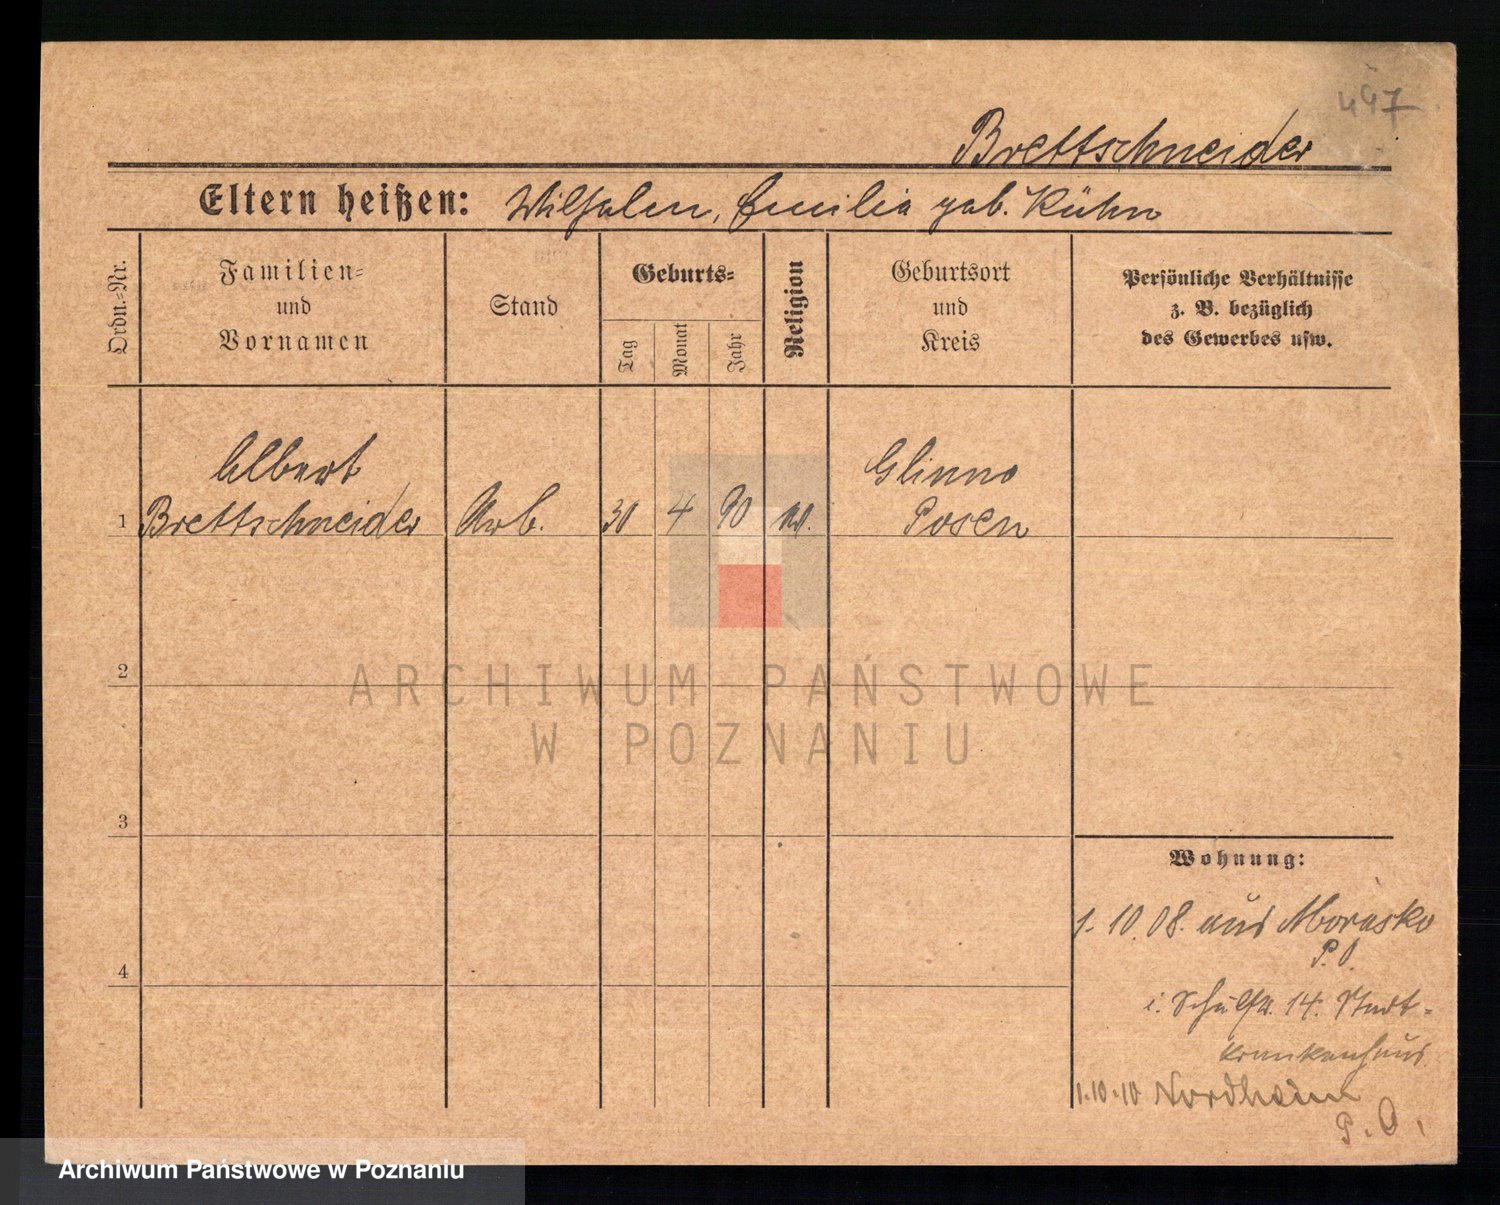 497
Brettschneider
Eltern heißen: Wilhelm, Emilia geb. Kühn
Ordn.-Nr.
Familien-
und
Vornamen
Stand
Geburts-
Tag
Monat
Jahr
Religion
Geburtsort
und
Kreis
Persönliche Verhältnisse
z. B. bezüglich
des Gewerbes usw.
Albert
Glinno
1 Brettschneider Arb. 30 4 90 ev. Posen
2
3
4
Wohnung:
1. 10. 08. aus Morasko
P. O.
i. Schulstr. 14. Stadt-
krankenhaus
1.10.10 Nordheim
P. O.
ARCHIWUM PAŃSTWOWE
W POZNANIU
Archiwum Państwowe w Poznaniu